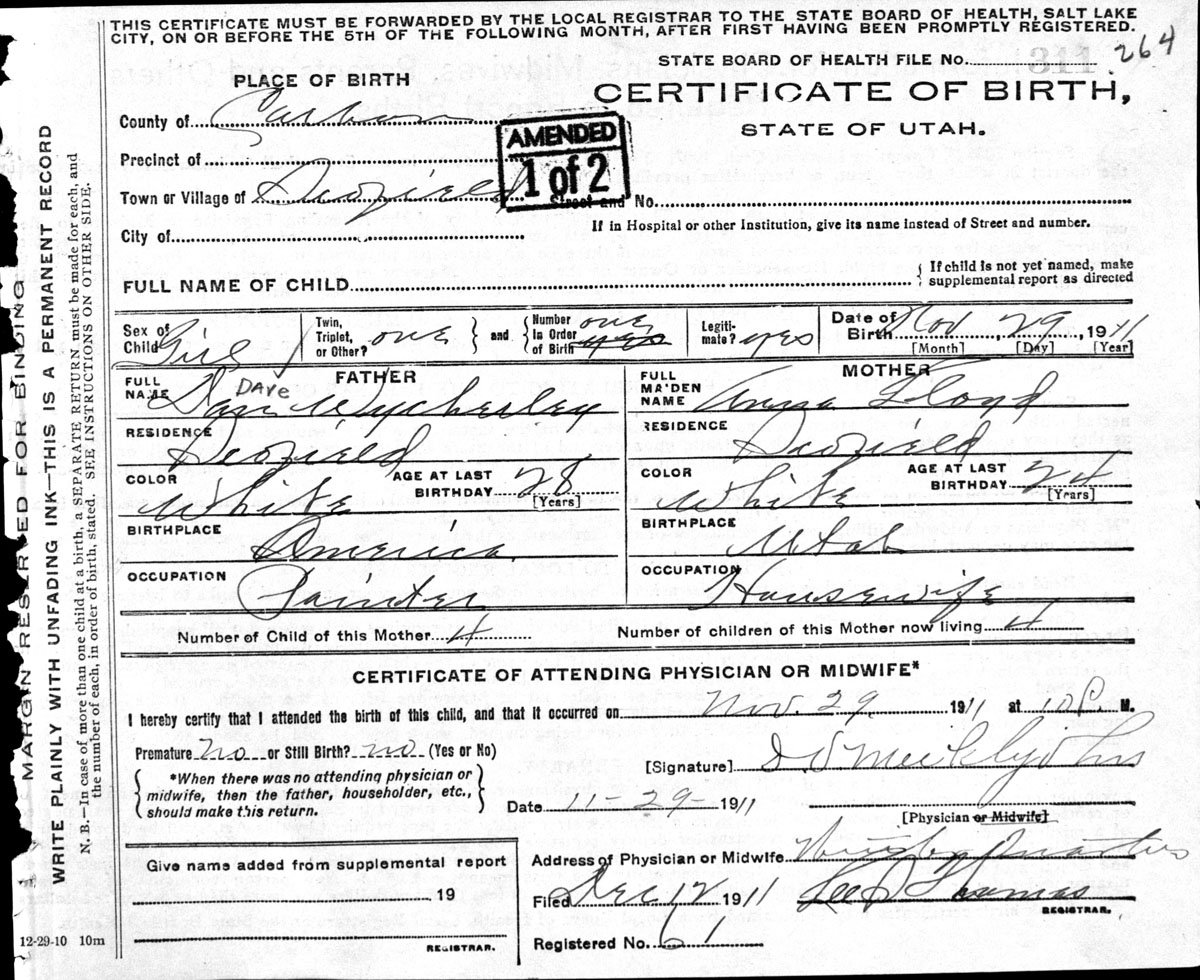 THIS CERTIFICATE MUST BE FORWARDED BY THE LOCAL REGISTRAR TO THE STATE BOARD OF HEALTH, SALT LAKE
CITY, ON OR BEFORE THE 5TH OF THE FOLLOWING MONTH, AFTER FIRST HAVING BEEN PROMPTLY REGISTERED.
STATE BOARD OF HEALTH FILE No. 311 264
PLACE OF BIRTH
CERTIFICATE OF BIRTH,
STATE OF UTAH.
County of Carbon
AMENDED
1 of 2
Precinct of
Town or Village of Scofield
Street and No.
City of
If in Hospital or other Institution, give its name instead of Street and number.
FULL NAME OF CHILD
{ If child is not yet named, make
supplemental report as directed
Sex of
Child Girl
Twin,
Triplet,
or Other? one
} and {
Number
In Order
of Birth one
Legiti-
mate? yes
Date of
Birth Nov 29, 1911
[Month] [Day] [Year]
FATHER
FULL
NAME Dan Wycherley
DAVE
MOTHER
FULL
MAIDEN
NAME Anna Lloyd
RESIDENCE Scofield
RESIDENCE Scofield
COLOR White
AGE AT LAST
BIRTHDAY 28
[Years]
COLOR White
AGE AT LAST
BIRTHDAY 24
[Years]
BIRTHPLACE America
BIRTHPLACE Utah
OCCUPATION Painter
OCCUPATION Housewife
Number of Child of this Mother 4
Number of children of this Mother now living 4
CERTIFICATE OF ATTENDING PHYSICIAN OR MIDWIFE*
I hereby certify that I attended the birth of this child, and that it occurred on Nov. 29 1911 at 10 P. M.
Premature no or Still Birth? no (Yes or No)
[Signature]
{ *When there was no attending physician or
midwife, then the father, householder, etc.,
should make this return. }
Date 11-29-1911
[Physician or Midwife]
Give name added from supplemental report
19
REGISTRAR.
Address of Physician or Midwife Winter Quarters
Filed Dec 12 1911 Lee Thomas
REGISTRAR.
Registered No. 61
12-29-10 10m
MARGIN RESERVED FOR BINDING
WRITE PLAINLY WITH UNFADING INK—THIS IS A PERMANENT RECORD
N. B.—In case of more than one child at a birth, a SEPARATE RETURN must be made for each, and
the number of each, in order of birth, stated. SEE INSTRUCTIONS ON OTHER SIDE.